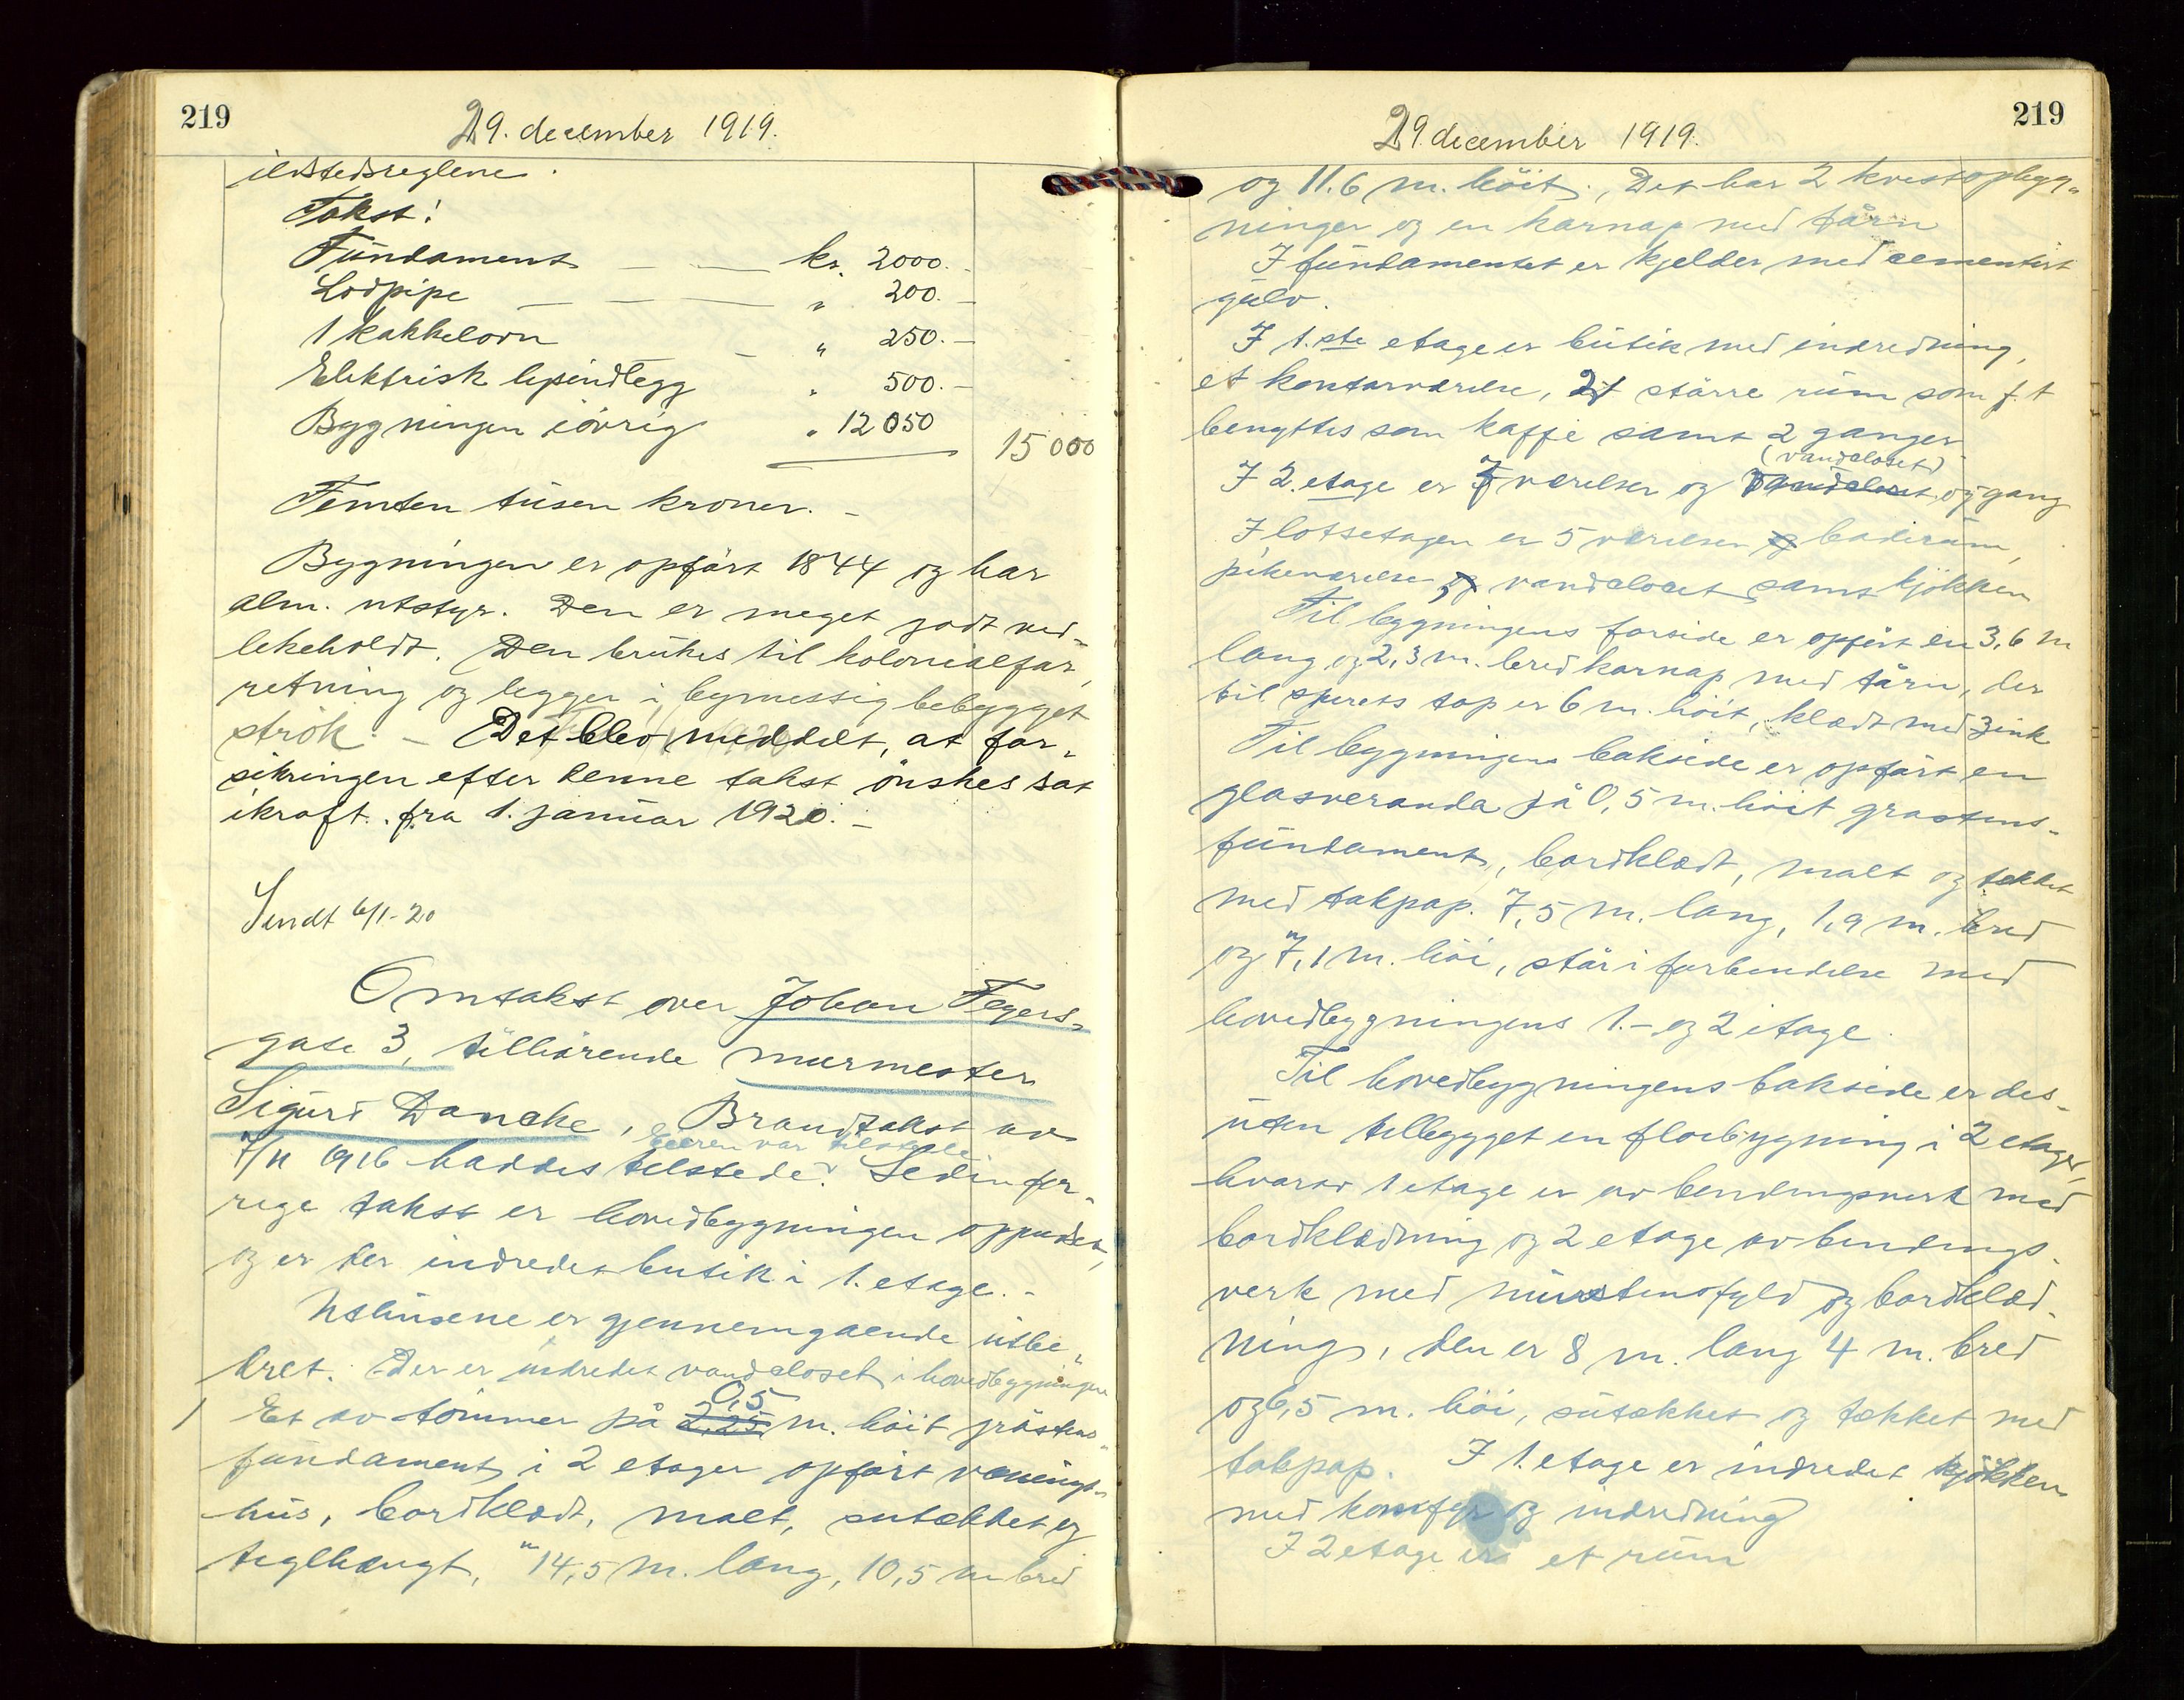 219
29. december 1919.
ildstedsreglene.
Takst:
Fundament — — kr. 2000.-
Lodpipe — — — " 200.-
1 kakkelovn — " 250.-
Elektrisk lysindlegg " 500.-
Bygningen iøvrig " 12 050
15 000
Femten tusen kroner. -
Bygningen er opført 1844 og har
alm. utstyr. Den er meget godt ved-
likeholdt. Den brukes til kolonialfor-
retning og ligger i bymessig bebygget
strøk. - Det blev meddelt, at for-
sikringen efter denne takst ønskes sat
ikraft fra 1. januar 1920. -
Sendt 6/1-20
Omtakst over Johan Feyers-
gate 3, tilhørende murmester
Sigurd Dancke, Brandtakst av
eieren var tilstede
7/11 1916 haddes tilstede. Siden for-
rige takst er hovedbygningen oppudset,
og er der indredet butik i 1. etage. -
Uthusene er gjennemgaaende utbe-
dret. Der er indredet vandcloset i hovedbygningen
0,5
1 Et av tømmer på 2,25 m. høit gråstens-
fundament i 2 etager opført vånings-
hus, bordklædt, malt, sutækket og
teglhængt, 14,5 m. lang, 10,5 m bred
219
29 december 1919.
og 11.6 m. høit. Det har 2 kvistopbyg-
ninger og en karnap med tårn
I fundamentet er kjelder med cementert
gulv.
I 1.ste etage er butik med indredning,
et kontorværelse, 2 større rum som f. t
benyttes som kaffe samt 2 ganger
(vandcloset)
I 2. etage er 7 værelser og vandcloset og gang
I loftsetagen er 5 værelser og baderum,
pikeværelse og vandcloset samt kjøkken
Til bygningens forside er opført en 3,6 m
lang og 2,3 m. bred karnap med tårn, der
til spirets top er 6 m. høit, klædt med zink
Til bygningens bakside er opført en
glasveranda på 0,5 m. høit graastens-
fundament, bordklædt, malt og tækket
med takpap. 7,5 m. lang, 1,9 m. bred
og 7,1 m. høi, står i forbindelse med
hovedbygningens 1.- og 2 etage.
Til hovedbygningens bakside er des-
uten tilbygget en fløibygning i 2 etager,
hvorav 1 etage er av bendingsverk med
bordklædning og 2 etage av bendings-
verk med murstensfyld og bordklæd-
ning, den er 8 m. lang 4 m. bred
og 6,5 m. høi, sutækket og tækket med
takpap. I 1. etage er indredet kjøkken
med komfyr og indredning
I 2 etage er et rum